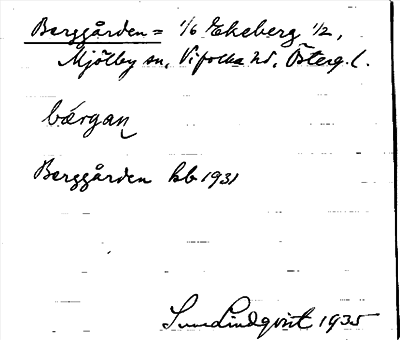 Berggården = 1/6 Ekeberg 1/2,
Mjölby sn, Vifolka hd, Österg. l.
bærgan
Berggården kb 1931
Sune Lindqvist 1935